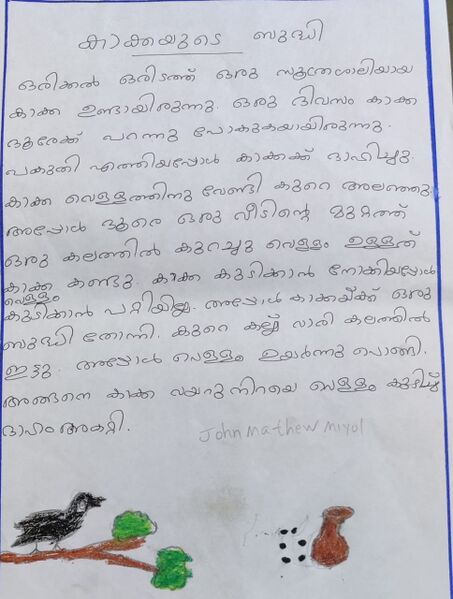 കാക്കയുടെ ബുദ്ധി
ഒരിക്കൽ ഒരിടത്ത് ഒരു സൂത്രശാലിയായ
കാക്ക ഉണ്ടായിരുന്നു. ഒരു ദിവസം കാക്ക
ദൂരേക്ക് പറന്നു പോകുകയായിരുന്നു.
പകുതി എത്തിയപ്പോൾ കാക്കക്ക് ദാഹിച്ചു.
കാക്ക വെള്ളത്തിനു വേണ്ടി കുറെ അലഞ്ഞു.
അപ്പോൾ ദൂരെ ഒരു വീടിന്റെ മുറ്റത്ത്
ഒരു കലത്തിൽ കുറച്ചു വെള്ളം ഉള്ളത്
കാക്ക കണ്ടു. കാക്ക കുടിക്കാൻ നോക്കിയപ്പോൾ
വെള്ളം
കുടിക്കാൻ പറ്റിയില്ല. അപ്പോൾ കാക്കയ്ക്ക് ഒരു
ബുദ്ധി തോന്നി. കുറെ കല്ല് വാരി കലത്തിൽ
ഇട്ടു. അപ്പോൾ വെള്ളം ഉയർന്നു പൊങ്ങി.
അങ്ങനെ കാക്ക വയറു നിറയെ വെള്ളം കുടിച്ച്
ദാഹം അകറ്റി.
John Mathew Miyol